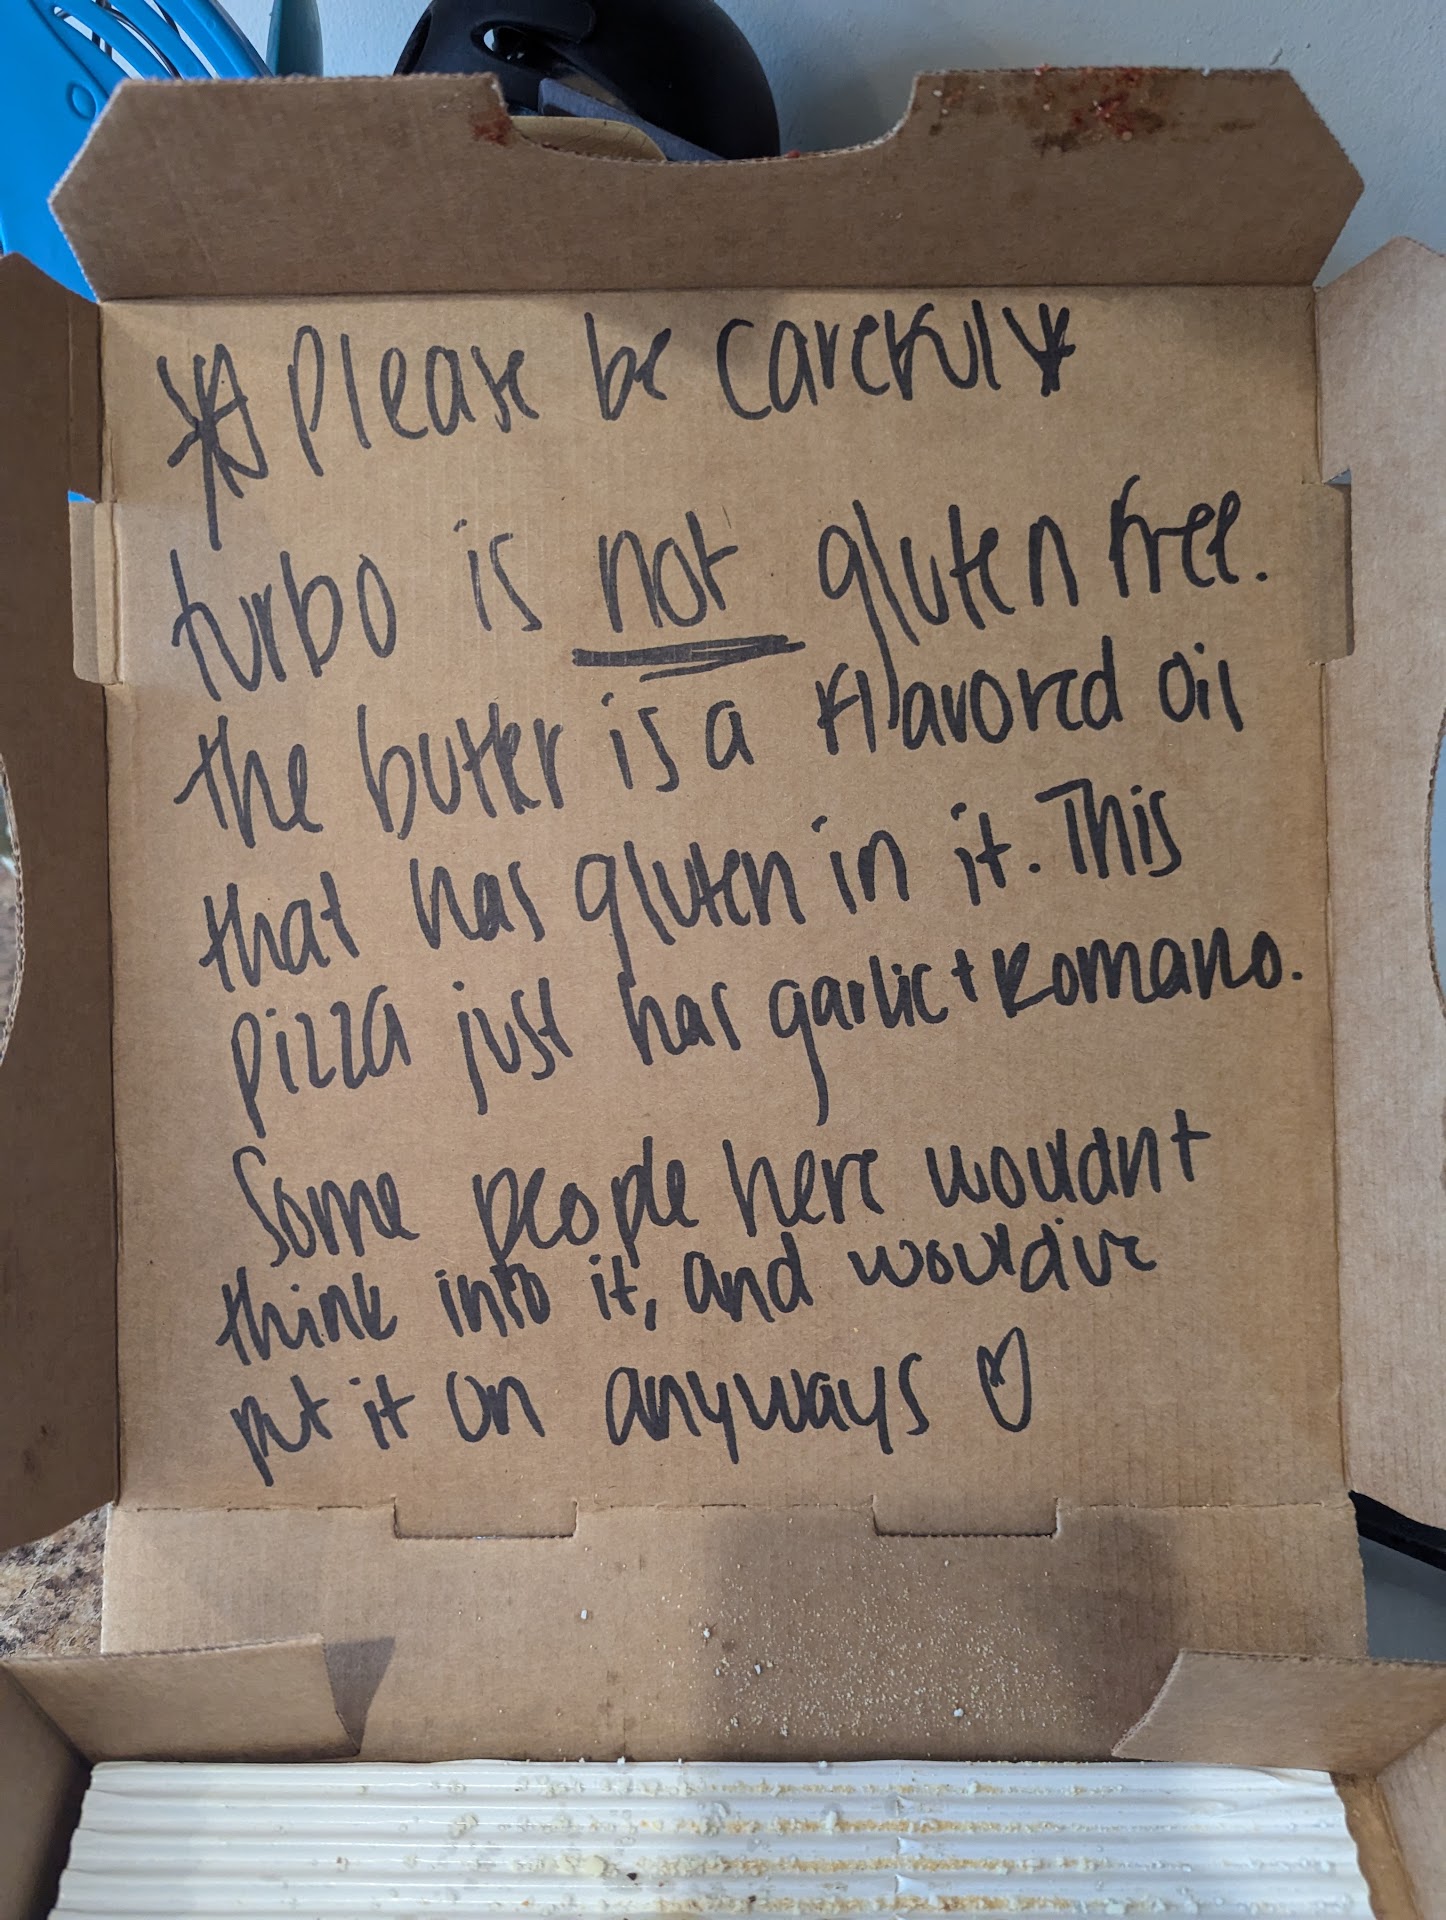 * Please be careful *
turbo is not gluten free.
the butter is a flavored oil
that has gluten in it. This
pizza just has garlic + Romano.
Some people here wouldnt
think into it, and would've
put it on anyways ♡